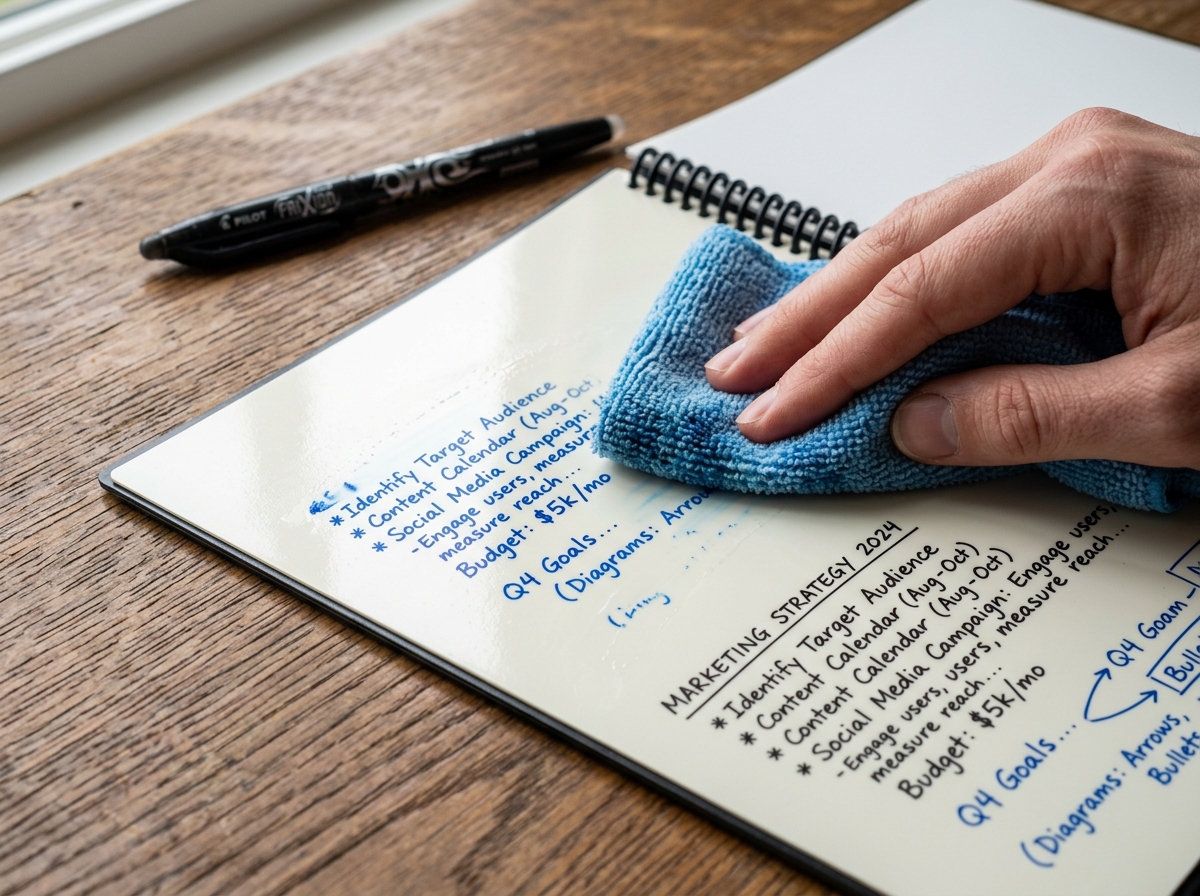 PILOT
FRIXION
* Identify Target Audience
* Content Calendar (Aug-Oct
* Social Media Campaign:
-Engage users, measure
measure reach...
Budget: $5k/mo
Q4 Goals...
(Diagrams: Arrow
MARKETING STRATEGY 2024
* Identify Target Audience
* Content Calendar (Aug-Oct)
* Content Calendar (Aug-Oct)
* Social Media Campaign: Engage users,
-Engage users, users, measure reach...
measure reach...
Budget: $5k/mo
Q4 Goals... Q4 Goam
(Diagrams: Arrows,
Bullets